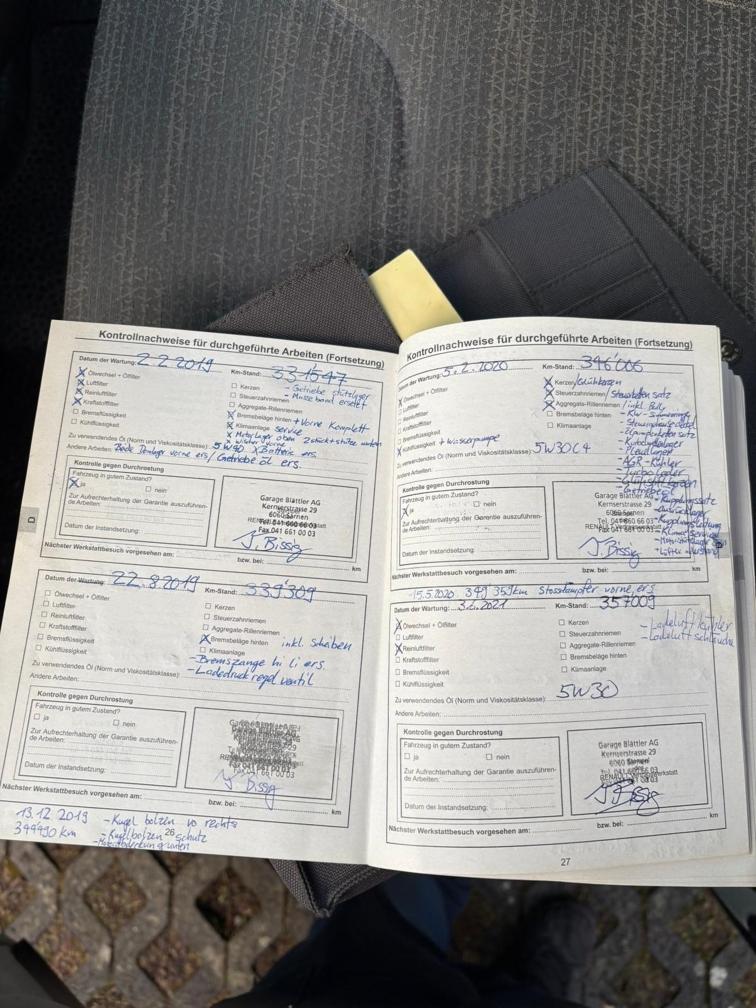 Kontrollnachweise für durchgeführte Arbeiten (Fortsetzung)
Datum der Wartung: 2.2.2019 Km-Stand: 331547
Ölwechsel + Ölfilter
Luftfilter
Reinluftfilter
Kraftstofffilter
Bremsflüssigkeit
Kühlflüssigkeit
Kerzen
Steuerzahnriemen
Aggregate-Rillenriemen
Bremsbeläge hinten + Vorne Komplett
Klimaanlage Service
- Getriebe
- Masseband ersetzt
Zu verwendendes Öl (Norm und Viskositätsklasse): 5W30 Batterie ers.
Andere Arbeiten: vorne ers/Getriebe öl ers.
Kontrolle gegen Durchrostung
Fahrzeug in gutem Zustand?
ja nein
Zur Aufrechterhaltung der Garantie auszuführende Arbeiten:
Datum der Instandsetzung:
Garage Blättler AG
Kernserstrasse 29
6060 Sarnen
Tel. 041 660 66 03
Fax 041 661 00 03
J. Bissig
Nächster Werkstattbesuch vorgesehen am: bzw. bei: km
D
Datum der Wartung: 22.8.2019 Km-Stand: 339'309
Ölwechsel + Ölfilter
Luftfilter
Reinluftfilter
Kraftstofffilter
Bremsflüssigkeit
Kühlflüssigkeit
Kerzen
Steuerzahnriemen
Aggregate-Rillenriemen
Bremsbeläge hinten inkl. Scheiben
Klimaanlage
- Bremszange hi li ers.
- Ladedruck regel ventil
Zu verwendendes Öl (Norm und Viskositätsklasse):
Andere Arbeiten:
Kontrolle gegen Durchrostung
Fahrzeug in gutem Zustand?
ja nein
Zur Aufrechterhaltung der Garantie auszuführende Arbeiten:
Datum der Instandsetzung:
J. Bissig
Nächster Werkstattbesuch vorgesehen am: bzw. bei: km
13.12.2019 - Kugel bolzen vo rechts
- Kugelbolzen schutz
26
Kontrollnachweise für durchgeführte Arbeiten (Fortsetzung)
Datum der Wartung: 5.2.2020 Km-Stand: 346'006
Ölwechsel + Ölfilter
Luftfilter
Reinluftfilter
Kraftstofffilter
Bremsflüssigkeit
Kühlflüssigkeit + Wasserpumpe
Kerzen/Glühkerzen
Steuerzahnriemen
Aggregate-Rillenriemen
Bremsbeläge hinten
Klimaanlage
- Pleuellager
- AGR-Kühler
- Turbolader
Zu verwendendes Öl (Norm und Viskositätsklasse): 5W30C4
Andere Arbeiten:
Kontrolle gegen Durchrostung
Fahrzeug in gutem Zustand?
ja nein
Zur Aufrechterhaltung der Garantie auszuführende Arbeiten:
Datum der Instandsetzung:
Garage Blättler AG
Kernserstrasse 29
6060 Sarnen
Tel. 041 660 66 03
J. Bissig
Nächster Werkstattbesuch vorgesehen am: bzw. bei:
- 15.5.2020 349'359km Stossdämpfer vorne ers
Datum der Wartung: 3.2.2021 Km-Stand: 357009
Ölwechsel + Ölfilter
Luftfilter
Reinluftfilter
Kraftstofffilter
Bremsflüssigkeit
Kühlflüssigkeit
Kerzen
Steuerzahnriemen
Aggregate-Rillenriemen
Bremsbeläge hinten
Klimaanlage
- Ladeluftkühler
- Ladeluft schläuche
Zu verwendendes Öl (Norm und Viskositätsklasse): 5W30
Andere Arbeiten:
Kontrolle gegen Durchrostung
Fahrzeug in gutem Zustand?
ja nein
Zur Aufrechterhaltung der Garantie auszuführende Arbeiten:
Datum der Instandsetzung:
Garage Blättler AG
Kernserstrasse 29
6060 Sarnen
J. Bissig
Nächster Werkstattbesuch vorgesehen am: bzw. bei: km
27